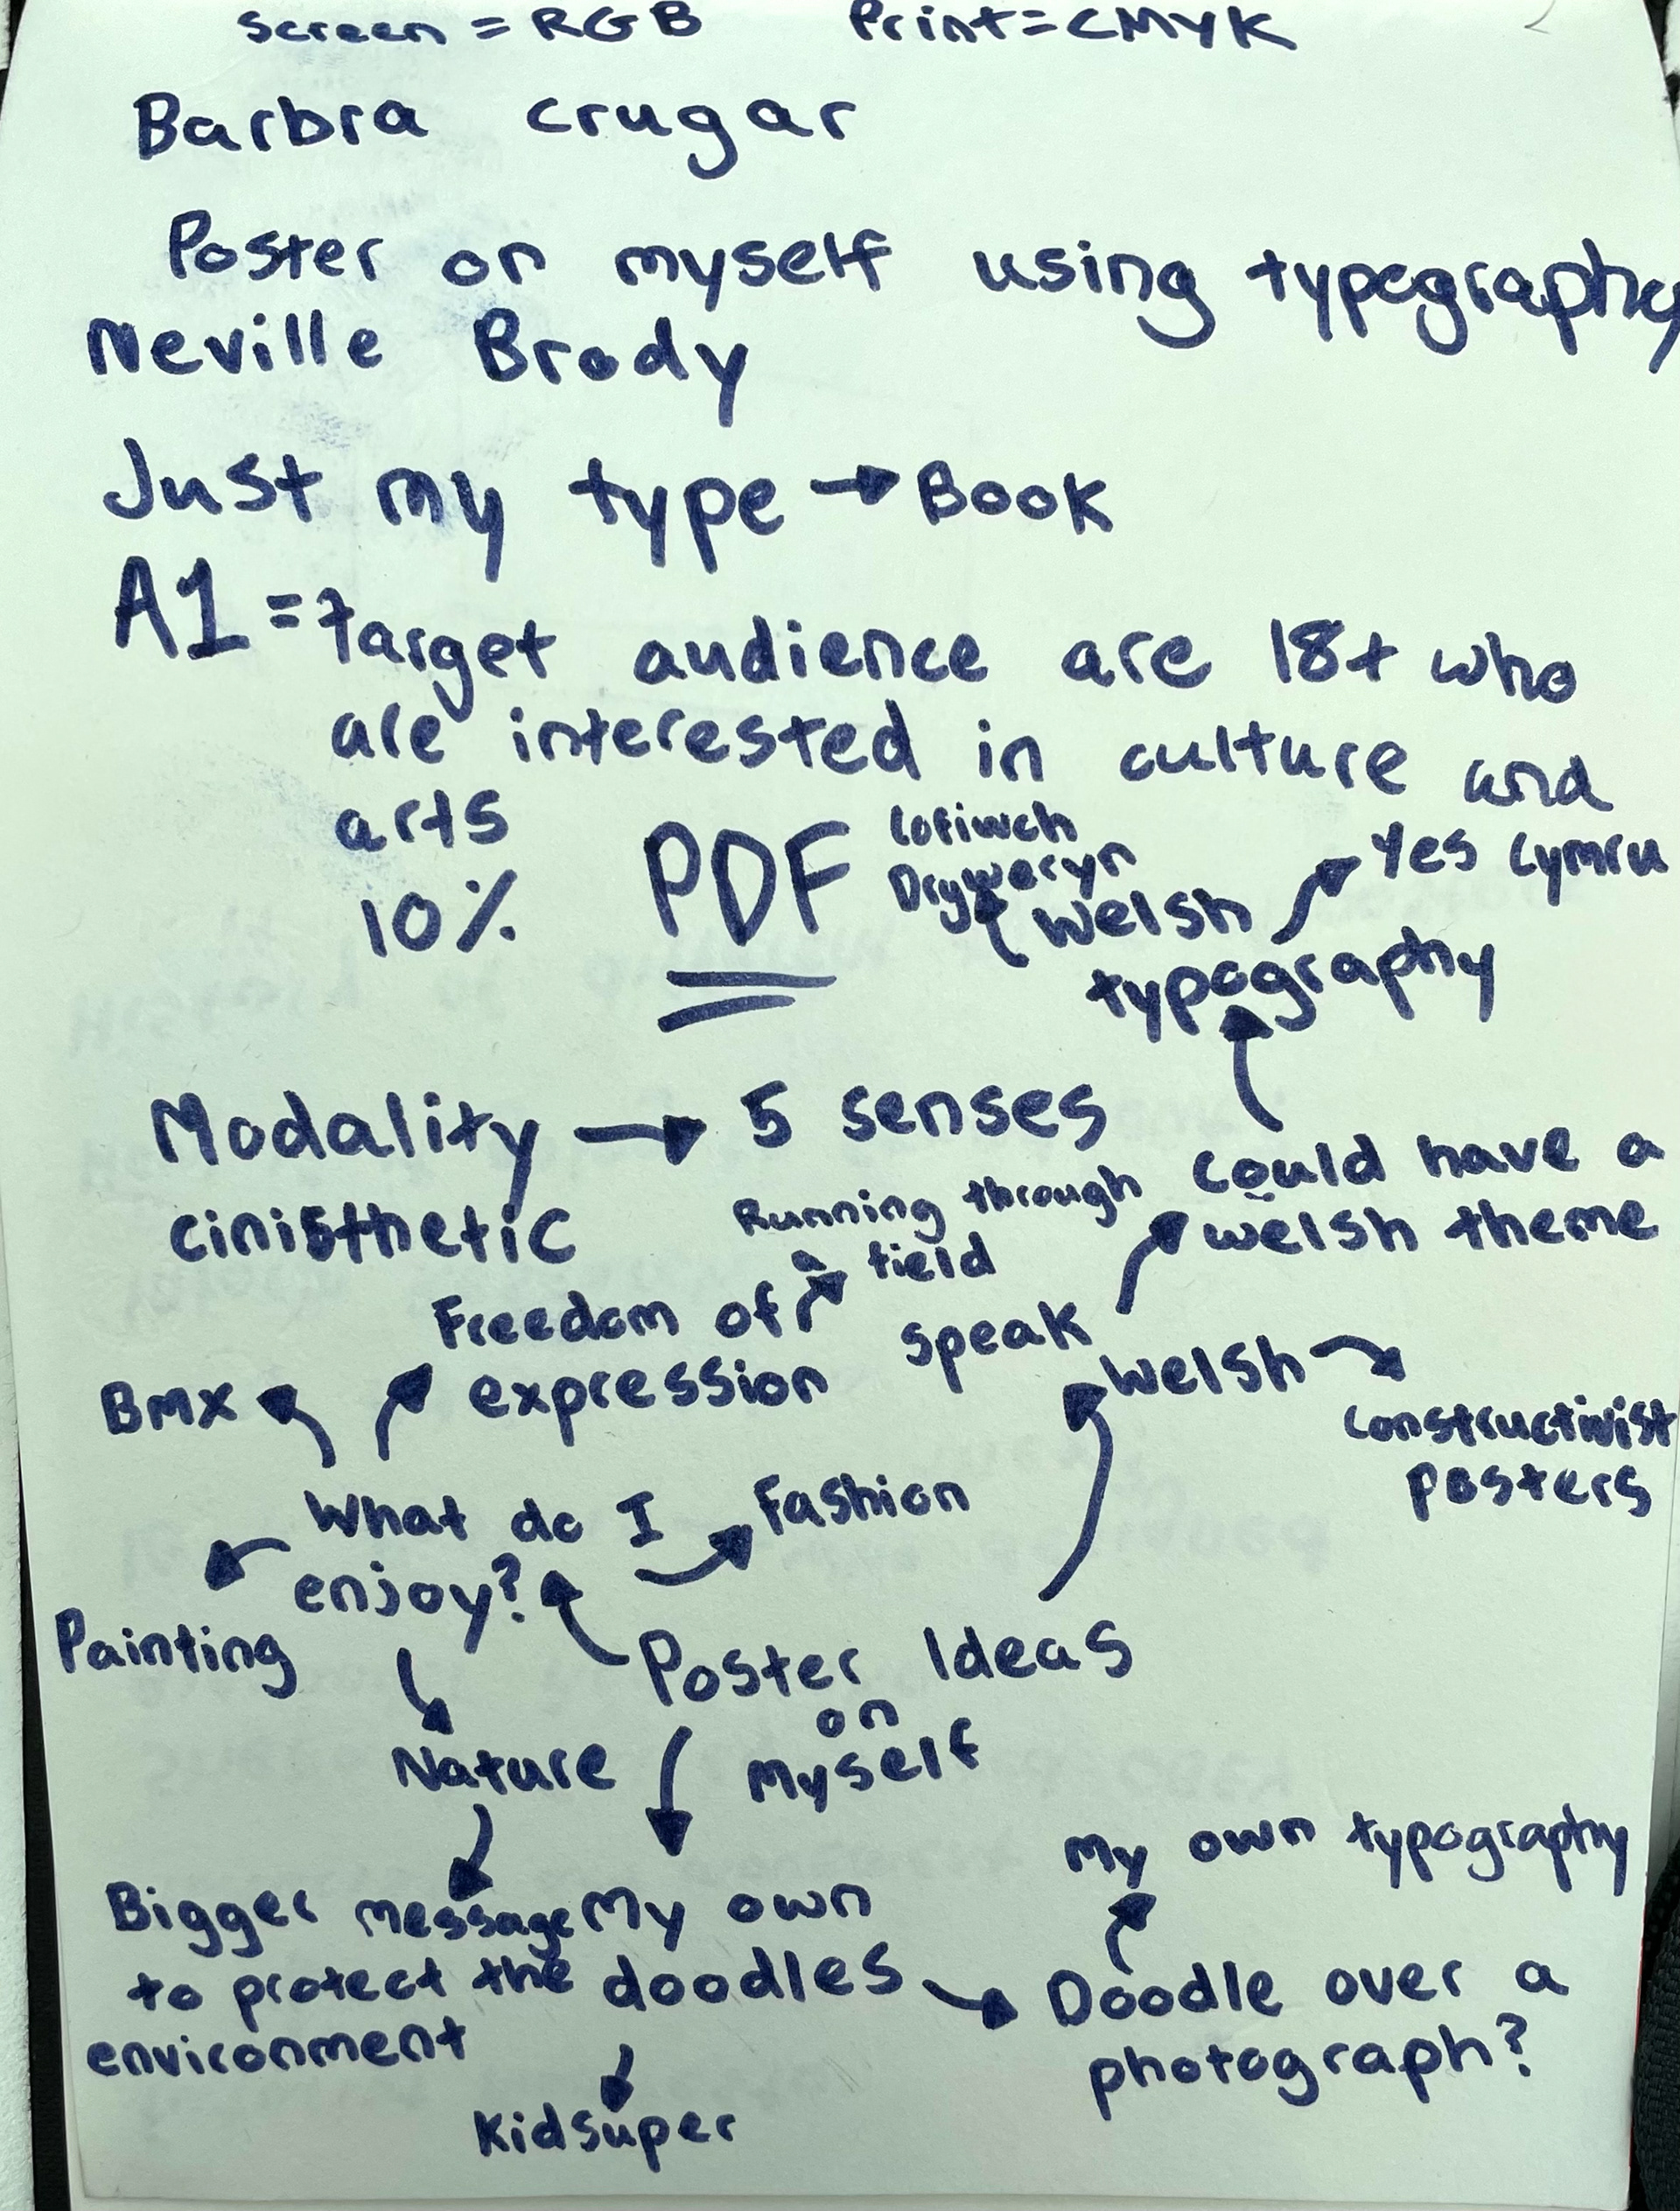 Screen = RGB Print=CMYK
Barbra crugar
Poster on myself using typography
Neville Brody
Just my type → Book
A1 = Target audience are 18+ who
are interested in culture and
arts
10%
PDF
Cofiwch
Dryweryn
Welsh
typography
Yes Cymru
Modality → 5 senses
cinisthetic
Could have a
welsh theme
Running through
a field
Freedom of
expression
speak
Welsh
Constructivist
posters
Bmx
What do I
enjoy?
Fashion
Painting
Poster Ideas
on
Myself
Nature
My own typography
Bigger message
to protect the
environment
My own
doodles
Doodle over a
photograph?
Kidsuper